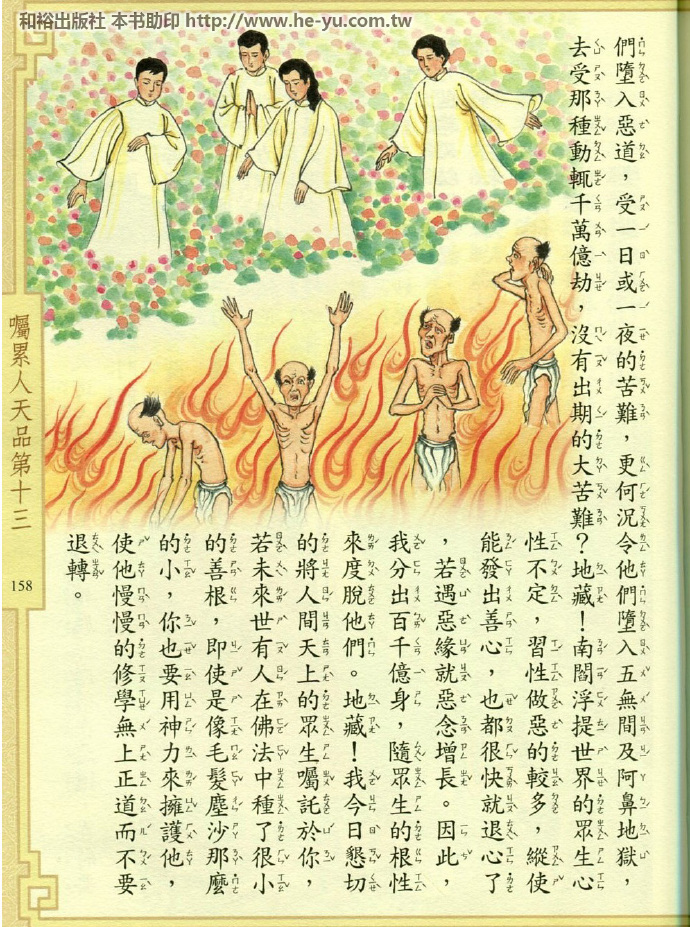 和裕出版社 本书助印 http://www.he-yu.com.tw
們墮入惡道，受一日或一夜的苦難，更何況令他們墮入五無間及阿鼻地獄，
去受那種動輒千萬億劫，沒有出期的大苦難？地藏！南閻浮提世界的眾生心
性不定，習性做惡的較多，縱使
能發出善心，也都很快就退心了
，若遇惡緣就惡念增長。因此，
我分出百千億身，隨眾生的根性
來度脫他們。地藏！我今日懇切
的將人間天上的眾生囑託於你，
若未來世有人在佛法中種了很小
的善根，即使是像毛髮塵沙那麼
的小，你也要用神力來擁護他，
使他慢慢的修學無上正道而不要
退轉。
囑累人天品第十三
158